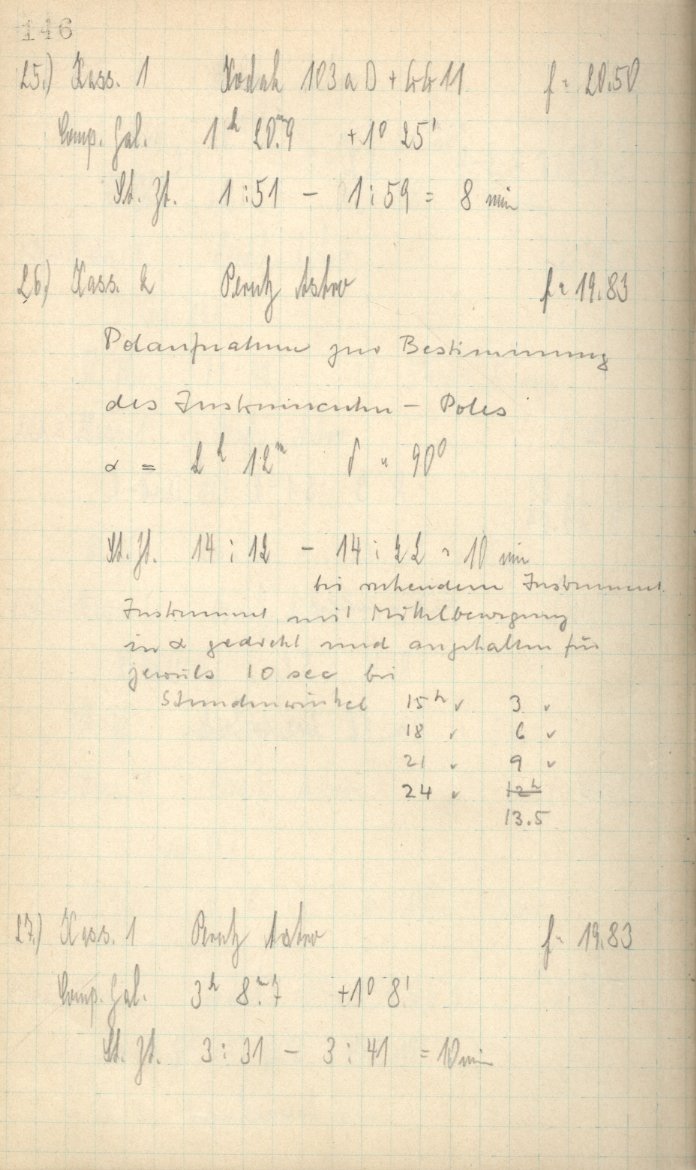 146
25.) Kass. 1 Kodak 103 a D + GG 11 f = 20.50
Comp. Gal. 1ʰ 20ᵐ.9 +1° 25'
St. Zt. 1:51 – 1:59 = 8 min
26) Kass. 2 Perutz Astro f = 19.83
Polaufnahme zur Bestimmung
des Instrumenten – Poles
α = 2ʰ 12ᵐ δ = 90°
St. Zt. 14:12 – 14:22 = 10 min
bei ruhendem Instrument.
Instrument mit Mittelbewegung
in α gedreht und angehalten für
jeweils 10 sec bei
Stundenwinkel 15ʰ ✓ 3 ✓
18 ✓ 6 ✓
21 ✓ 9 ✓
24 ✓ 12ʰ
13.5
27.) Kass. 1 Perutz Astro f = 19.83
Comp. Gal. 3ʰ 8ᵐ.7 +1° 8'
St. Zt. 3:31 – 3:41 = 10 min